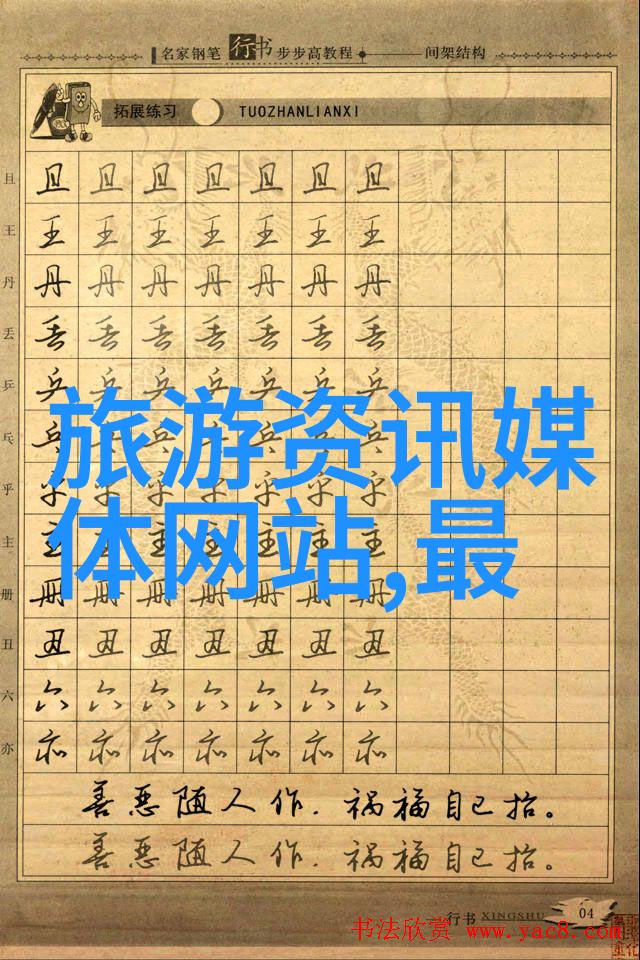 名家钢笔行书步步高教程 间架结构
拓展练习 TUOZHANLIANXI
且 且 且 且 且 且 且 且
王 王 王 王 王 王 王 王
丹 丹 丹 丹 丹 丹 丹 丹
丢 丢 丢 丢 丢 丢 丢 丢
乒 乒 乒 乒 乒 乒 乒 乒
乓 乓 乓 乓 乓 乓 乓 乓
旅游资讯媒
乎 乎 乎 乎 乎 乎 乎 乎
主 主 主 主 主 主 主 主
体网站,最
册 册 册 册 册 册 册 册
丑 丑 丑 丑 丑 丑 丑 丑
六 六 六 六 六 六 六 六
亦 亦 亦 亦 亦 亦 亦 亦
善恶随人作.祸福自己招。
善恶随人作.祸福自己招。
行书 XINGSHU 04
书法欣赏 www.yac8.com